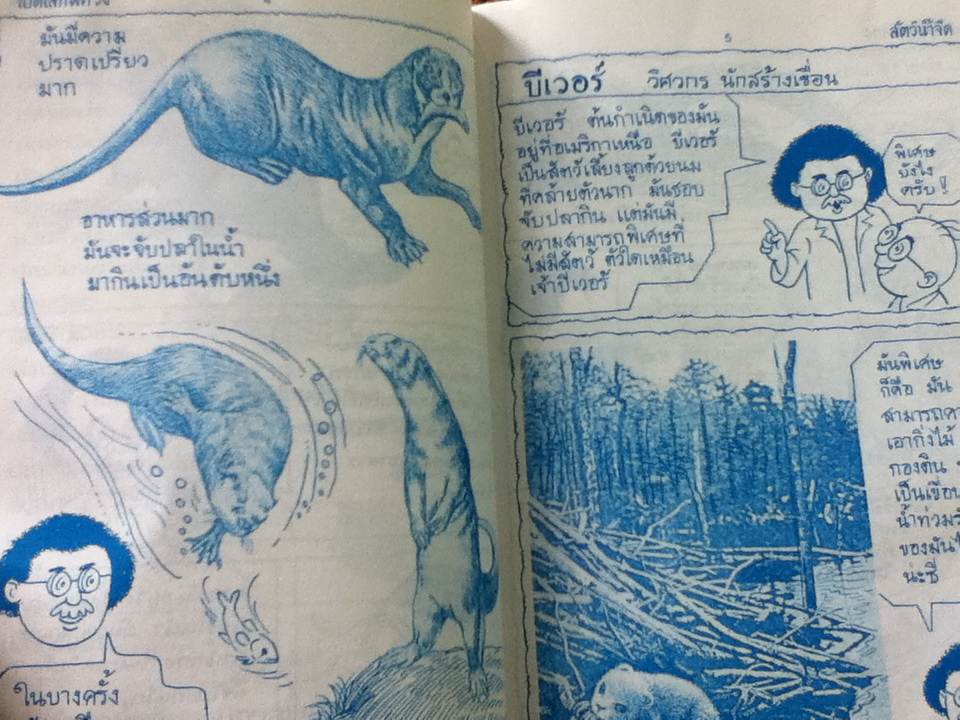 มันมีความ
ปราดเปรียว
มาก
อาหารส่วนมาก
มันจะจับปลาในน้ำ
มากินเป็นอันดับหนึ่ง
ในบางครั้ง
๕
สัตว์น้ำจืด
บีเวอร์ วิศวกร นักสร้างเขื่อน
บีเวอร์ ต้นกำเนิดของมัน
อยู่ที่อเมริกาเหนือ บีเวอร์
เป็นสัตว์เลี้ยงลูกด้วยนม
ที่คล้ายตัวนาก มันชอบ
จับปลากิน แต่มันมี
ความสามารถพิเศษที่
ไม่มีสัตว์ ตัวใดเหมือน
เจ้าบีเวอร์
พิเศษ
ยังไง
ครับ!
มันพิเศษ
ก็คือ มัน
สามารถ
เอากิ่งไม้
กองดิน
เป็นเขื่อน
น้ำท่วม
ของมัน
น่ะซี